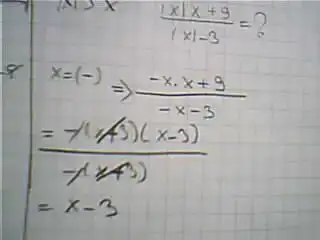 (|x|x + 9)/(|x| - 3) = ?
x = (-) ⇒ (-x.x + 9)/(-x - 3)
= (-(x+3)(x-3))/(-(x+3))
= x - 3